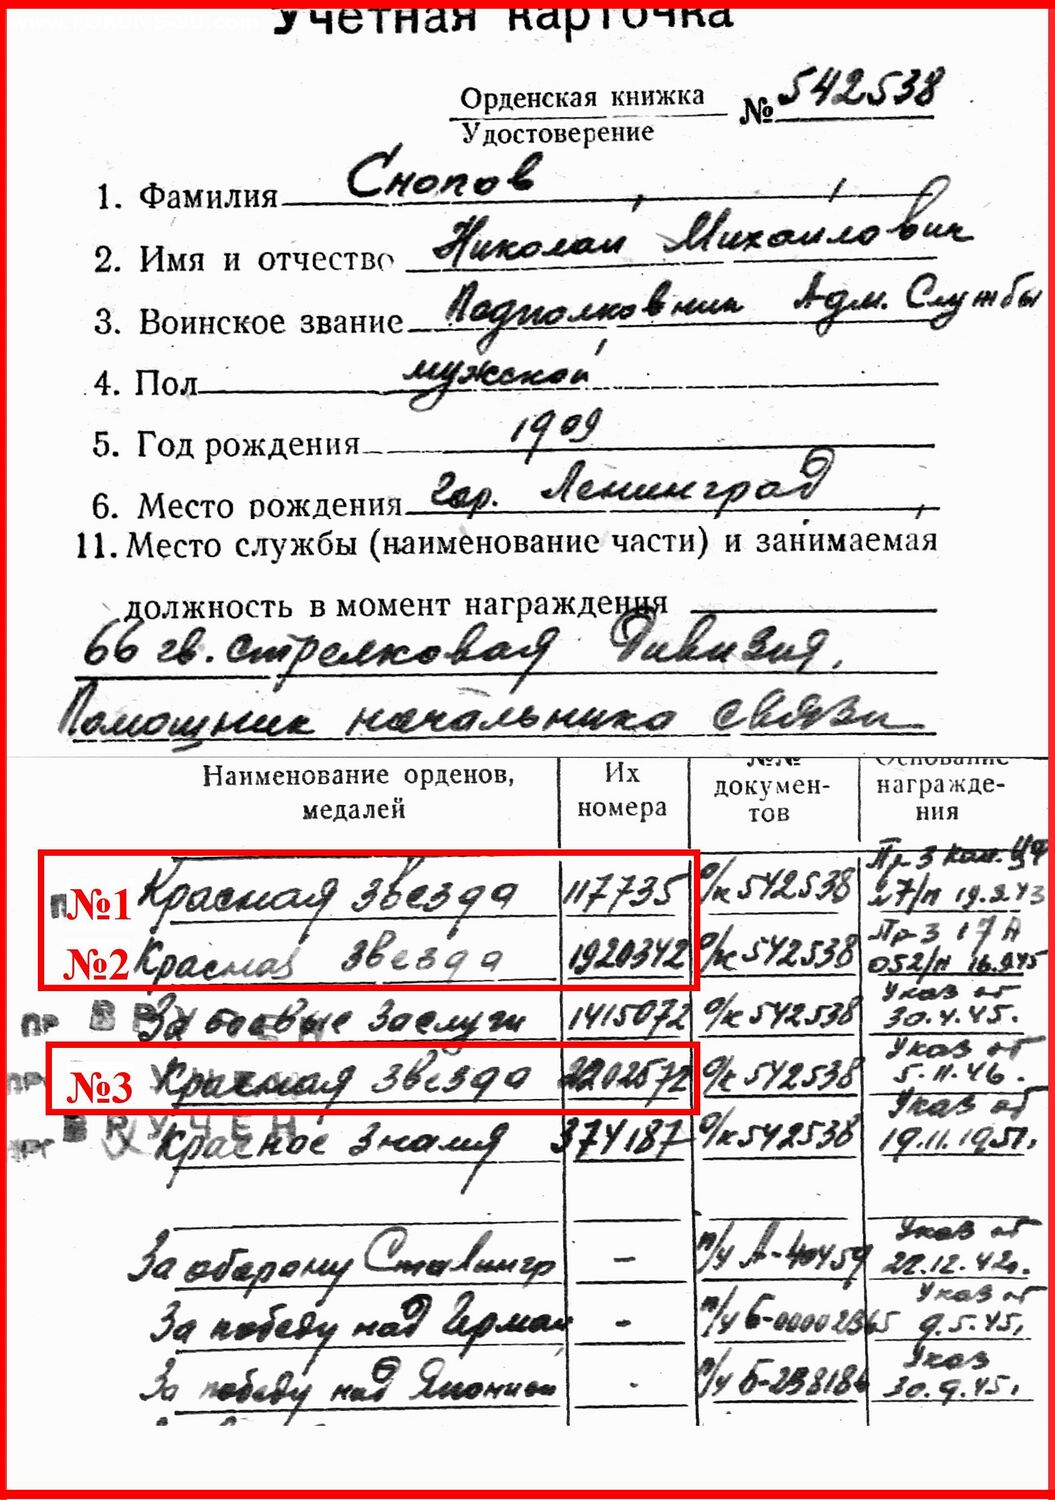 WWW.FORUMS-SU.COM
Учетная карточка
Орденская книжка
Удостоверение
№ 542538
1. Фамилия Снопов
2. Имя и отчество Николай Михайлович
3. Воинское звание Подполковник Адм. Службы
4. Пол мужской
5. Год рождения 1909
6. Место рождения гор. Ленинград
11. Место службы (наименование части) и занимаемая
должность в момент награждения
66 гв. стрелковая Дивизия,
Помощник начальника связи
Наименование орденов, медалей Их номера №№ документов Основание награждения
№1 Красная звезда 117735 о/к 542538 Пр-з 27/н 19.2.43
№2 Красная звезда 1920342 о/к 542538 Пр-з 17 А 052/н 16.9.45
За боевые Заслуги 1415072 о/к 542538 Указ от 30.4.45.
№3 Красная звезда 2202572 о/к 542538 Указ от 5.11.46.
ВРУЧЕН
Красное Знамя 374187 о/к 542538 Указ от 19.11.1951.
За оборону Сталингр – п/у А-40459 Указ от 22.12.42г.
За победу над Герман - п/у Б-0000 Указ от 9.5.45г.
За победу над Японией - п/у Б- Указ 30.9.45г.